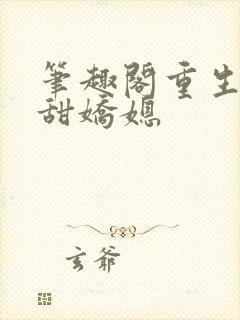 筆趣閣重生
甜嬌媳
玄爺